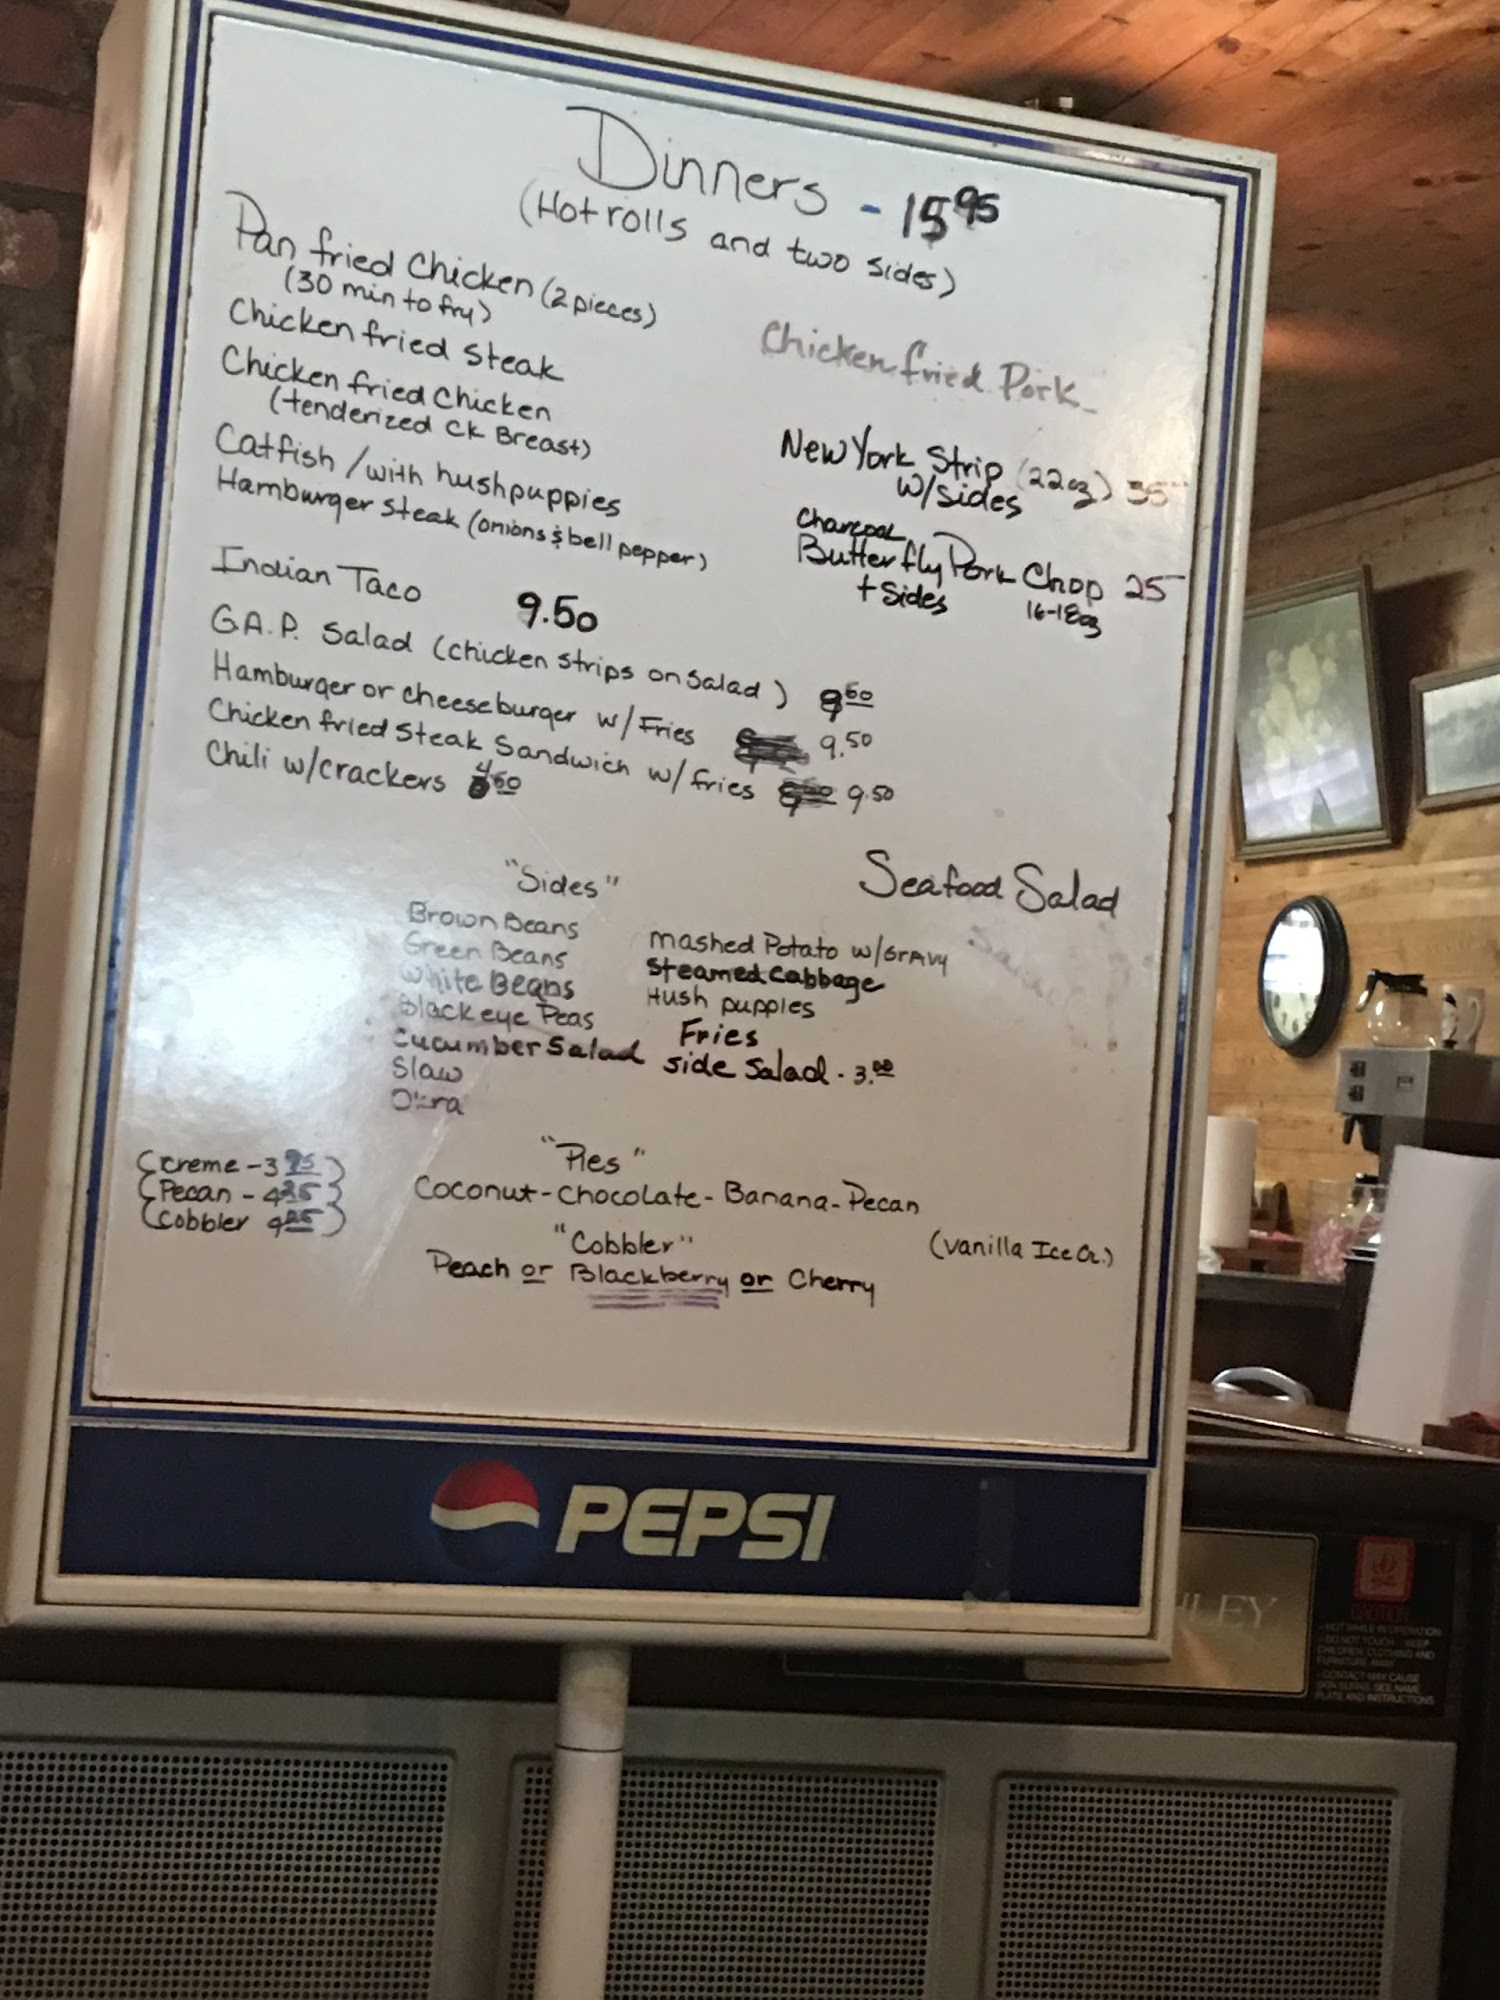 Dinners - 15 95
(Hot rolls and two sides)
Pan fried Chicken (2 pieces)
(30 min to fry)
Chicken fried Steak
Chicken fried Chicken
(tenderized CK Breast)
Catfish /with hushpuppies
Hamburger steak (onions & bell pepper)
Chicken fried Pork
New York Strip (22oz) 35
w/sides
Charcoal
Butterfly Pork Chop 25
+ Sides 16-18oz
Indian Taco 9.50
G.A.P. Salad (chicken strips on salad)
Hamburger or cheeseburger w/ Fries 9.50
Chicken fried Steak Sandwich w/ fries 9.50
Chili w/crackers
"Sides"
Brown Beans
Green Beans
White Beans
Blackeye Peas
Cucumber Salad
Slaw
Okra
Seafood Salad
mashed Potato w/GrAvy
Steamed Cabbage
Hush puppies
Fries
side Salad - 3.00
(creme - 3 95)
(Pecan -
(cobbler
"Pies"
Coconut - Chocolate - Banana - Pecan
"Cobbler"
Peach or Blackberry or Cherry
(vanilla Ice Cr.)
PEPSI
HLEY
CAUTION
- HOT WHILE IN OPERATION
- DO NOT TOUCH. KEEP
CHILDREN, CLOTHING AND
FURNITURE AWAY
- CONTACT MAY CAUSE
SKIN BURNS. SEE NAME
PLATE AND INSTRUCTIONS